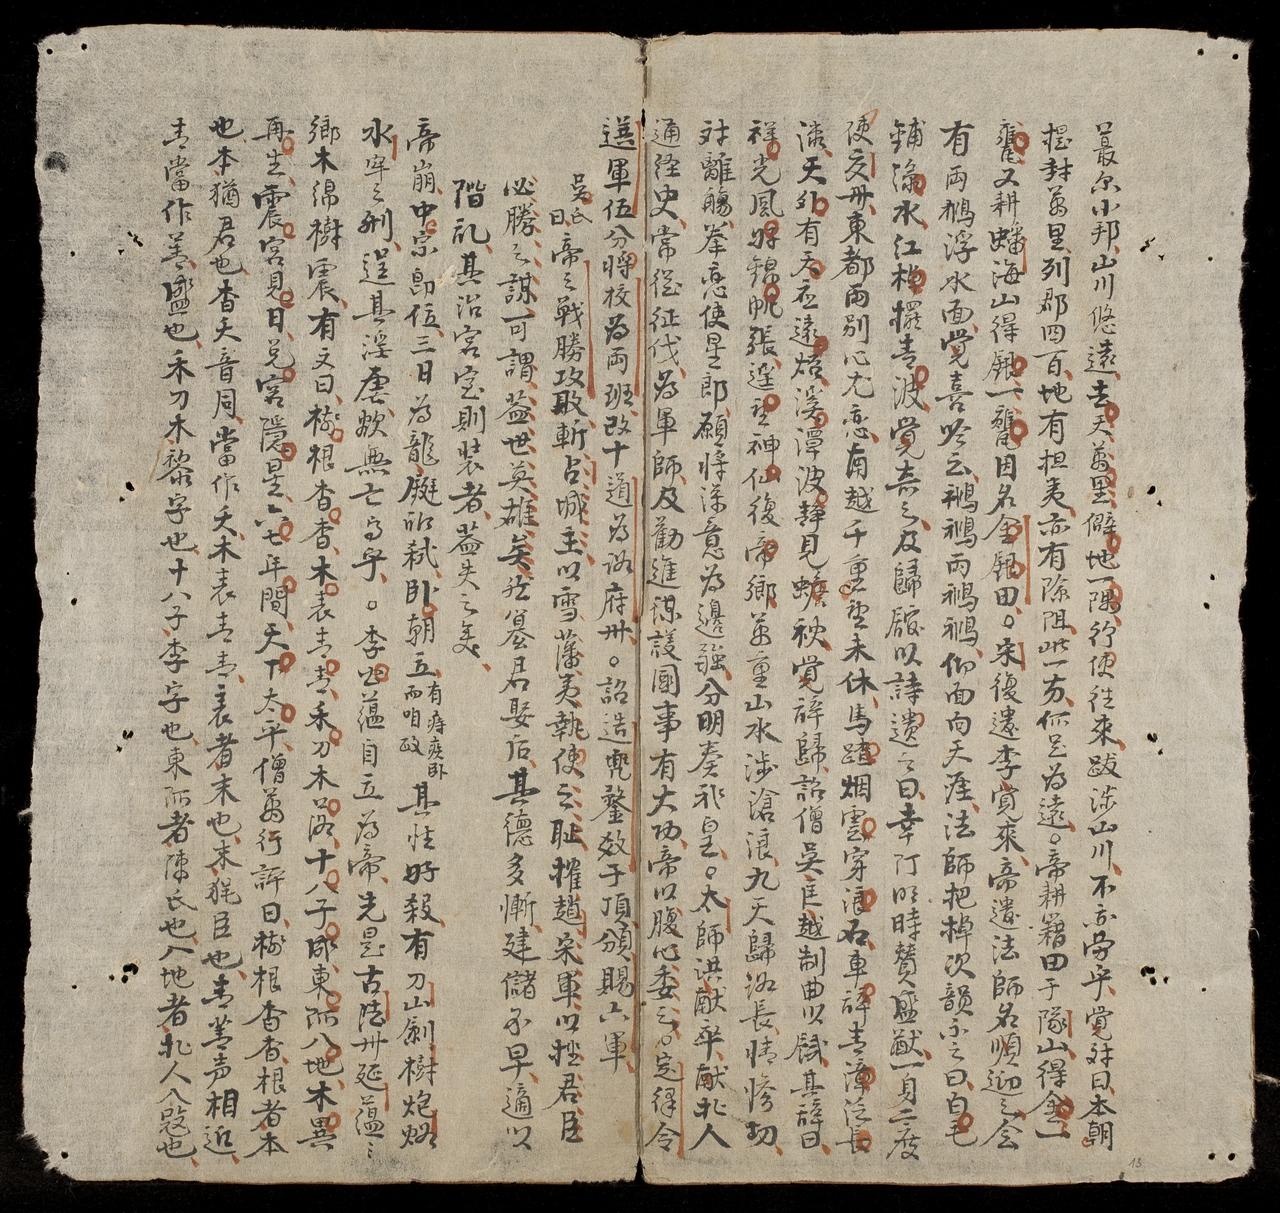 蕞尔小邦山川悠遠去天萬里僻地一隅行使往來跋涉山川不亦劳乎覺对曰本朝
提封萬里列郡四百地有担夷亦有險阻此一方何足为遠○帝耕籍田于隊山得金一
甕又耕蟠海山得銀一甕因名金銀田○宋復遣李覚來帝遣法師名順迎之会
有両鵝浮水面覚喜吟云鵝鵝両鵝鵝仰面向天涯法師把棹次韻示之曰白毛
鋪淥水红棹擺青波覚奇之及歸館以詩遺之曰幸附明時賛盛猷一身二度
使交州東都両别心尤恋南越千重望未休馬踏烟雲穿浪石車辞青漳泛長
流天外有天应遠炤溪潭波静見蟾秋覚辞歸詔僧吳匡越制曲以餞其辞曰
祥光風好錦帆張遥望神仙復帝鄉萬重山水涉滄浪九天歸路長情惨切
对離觴攀恋使星郎願将深意为邊疆分明奏我皇○太師洪献卒献北人
通经史常從征伐为軍師及勸進謀議國事有大功帝以腹心委之○定律令
選軍伍分将校为両班改十道为路府州○詔造兜鍪数于頂頒賜六軍
吳氏曰帝之戦勝攻取斬占城主以雪藩夷執使之耻摧趙宋軍以挫君臣
必勝之謀可謂蓋世英雄矣然篡君娶后其德多慚建儲不早適以
階乱其治宮室則裝者蓋失之矣
帝崩中宗即位三日为龍鋌所弒卧朝立有痔疾卧而咱政其性好殺有刀山劍樹炮烙
水牢之刑逞其淫虐欲無亡可乎○李公蘊自立为帝先是古法州延蘊之
鄉木绵樹震有文曰樹根杳杳木表青青禾刀木落十八子成東阿入地木異
再生震宮見日兌宮隱星六七年間天下太平僧萬行評曰樹根杳杳根者本
也本猶君也杳夭音同當作夭木表青青表者末也末猶臣也青菁声相近
青當作菁盛也禾刀木黎字也十八子李字也東阿者陳氏也入地者北人入寇也